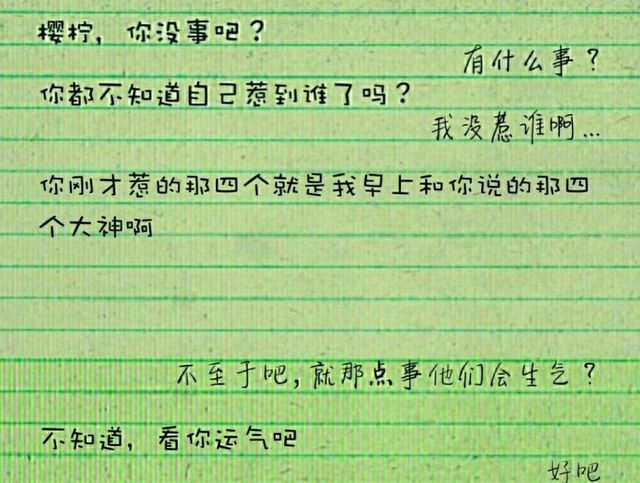 樱柠，你没事吧？
有什么事？
你都不知道自己惹到谁了吗？
我没惹谁啊...
你刚才惹的那四个就是我早上和你说的那四
个大神啊
不至于吧，就那点事他们会生气？
不知道，看你运气吧
好吧